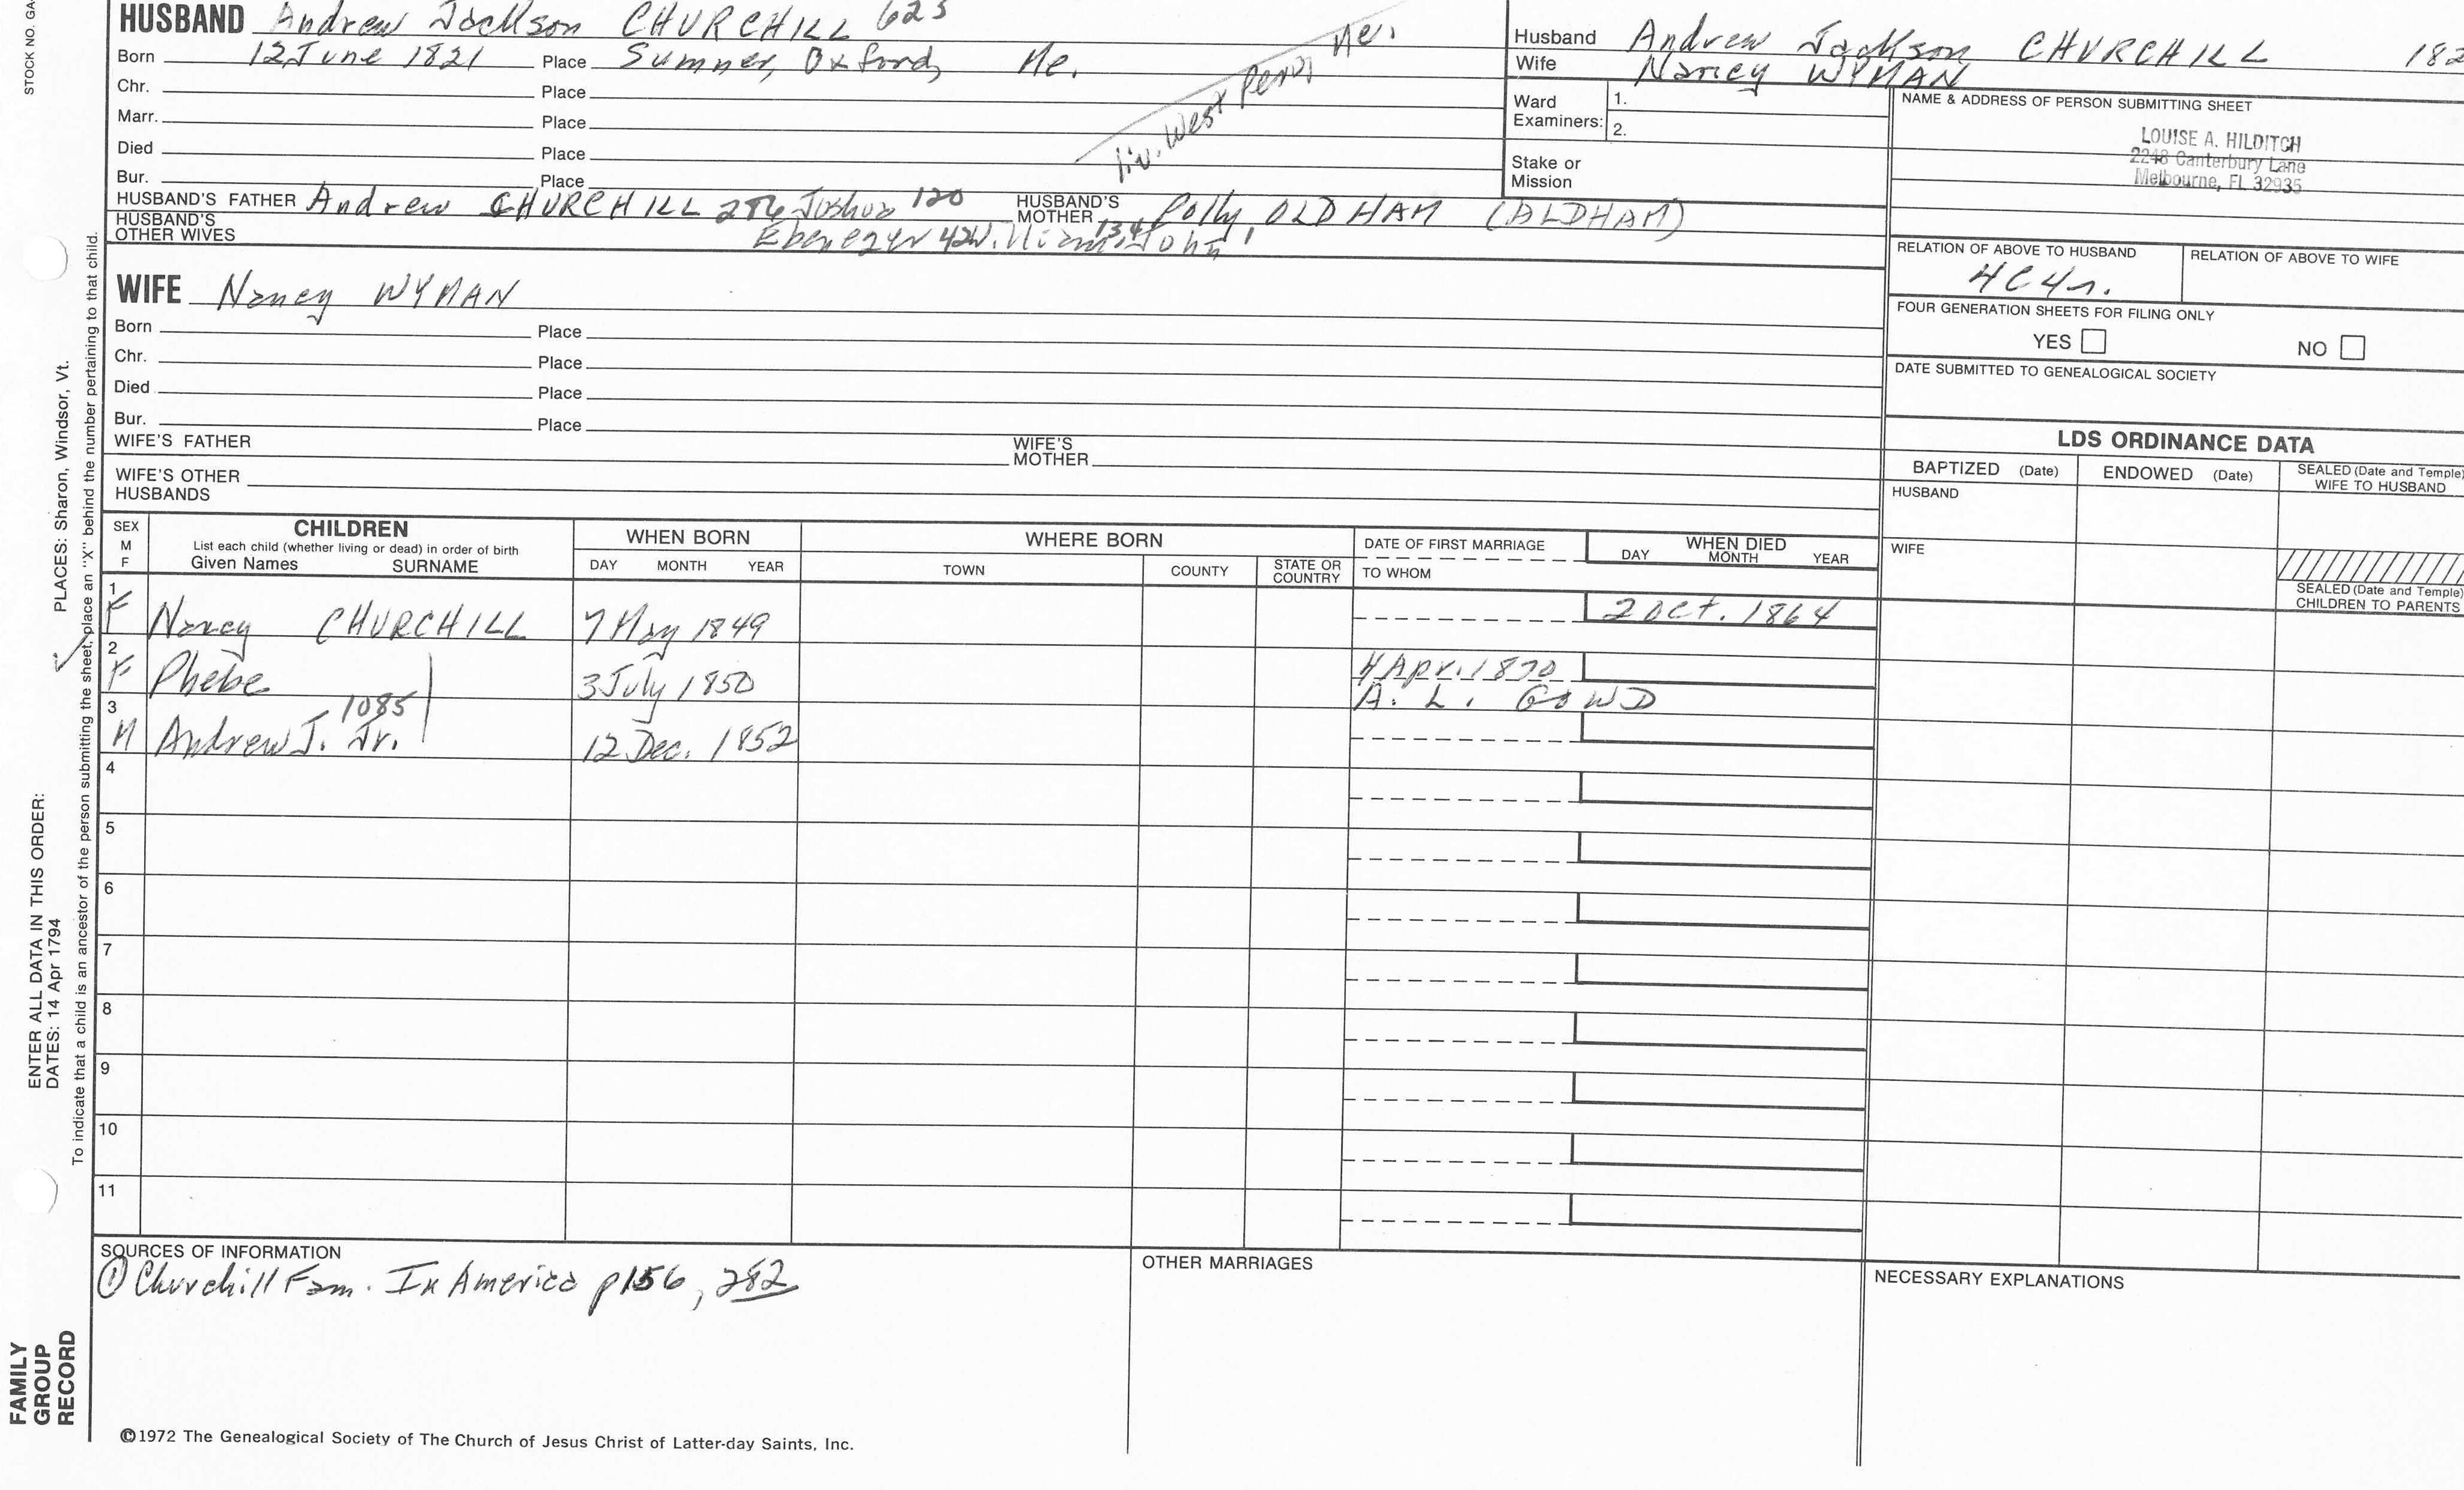 HUSBAND Andrew Jackson CHURCHILL 623
Born 12 June 1821 Place Sumner, Oxford, Me.
liv. West Peru, Me.
Chr. Place
Marr. Place
Died Place
Bur. Place
HUSBAND'S FATHER Andrew CHURCHILL 276 Joshua 120 HUSBAND'S MOTHER Polly OLDHAM (ALDHAM)
HUSBAND'S OTHER WIVES Ebenezer 42 William 13,4 John 1
Husband Andrew Jackson CHURCHILL 182
Wife Nancy WYMAN
Ward Examiners: 1.
2.
Stake or Mission
NAME & ADDRESS OF PERSON SUBMITTING SHEET
LOUISE A. HILDITCH
2248 Canterbury Lane
Melbourne, FL 32935
RELATION OF ABOVE TO HUSBAND RELATION OF ABOVE TO WIFE
4C4r.
FOUR GENERATION SHEETS FOR FILING ONLY
YES NO
DATE SUBMITTED TO GENEALOGICAL SOCIETY
WIFE Nancy WYMAN
Born Place
Chr. Place
Died Place
Bur. Place
WIFE'S FATHER WIFE'S MOTHER
WIFE'S OTHER HUSBANDS
LDS ORDINANCE DATA
BAPTIZED (Date) ENDOWED (Date) SEALED (Date and Temple) WIFE TO HUSBAND
HUSBAND
WIFE
SEALED (Date and Temple) CHILDREN TO PARENTS
SEX M F
CHILDREN
List each child (whether living or dead) in order of birth
Given Names SURNAME
WHEN BORN
DAY MONTH YEAR
WHERE BORN
TOWN COUNTY STATE OR COUNTRY
DATE OF FIRST MARRIAGE
TO WHOM
WHEN DIED
DAY MONTH YEAR
1 F Nancy CHURCHILL 7 May 1849 2 Oct. 1864
2 F Phebe 3 July 1850 4 Apr. 1870
A. L. GOWD
3 M Andrew J. Jr. 1085 12 Dec. 1852
4
5
6
7
8
9
10
11
SOURCES OF INFORMATION
① Churchill Fam. In America p156, 282
OTHER MARRIAGES
NECESSARY EXPLANATIONS
©1972 The Genealogical Society of The Church of Jesus Christ of Latter-day Saints, Inc.
STOCK NO. GA
FAMILY GROUP RECORD
ENTER ALL DATA IN THIS ORDER:
DATES: 14 Apr 1794
PLACES: Sharon, Windsor, Vt.
To indicate that a child is an ancestor of the person submitting the sheet, place an "X" behind the number pertaining to that child.